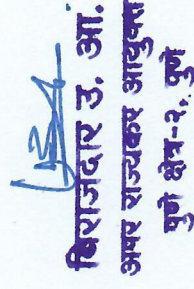 बिराजदार उ. आ.
अपर राज्यकर आयुक्त
पुणे क्षेत्र-२, पुणे